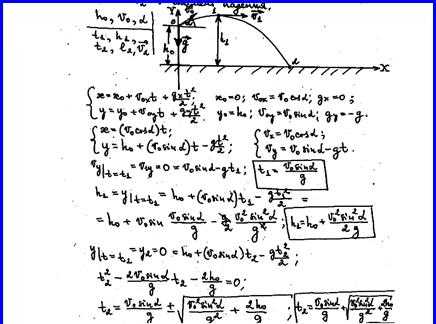 h₀, v₀, α
t₁, h₁,
t₂, l₂, v₂
Y
0
1
v₁
g
h₀
h₁
2
X
{ x = x₀ + v₀ₓt + gₓt²/2; x₀ = 0; v₀ₓ = v₀cosα; gₓ = 0;
y = y₀ + v₀ᵧt + gᵧt²/2; y₀ = h₀; v₀ᵧ = v₀sinα; gᵧ = -g.
{ x = (v₀cosα)t; { vₓ = v₀cosα;
y = h₀ + (v₀sinα)t - gt²/2; vᵧ = v₀sinα - gt.
vᵧ|t=t₁ = v₁ᵧ = 0 = v₀sinα - gt₁; t₁ = v₀sinα/g
h₁ = y|t=t₁ = h₀ + (v₀sinα)t₁ - gt₁²/2 =
= h₀ + v₀sinα v₀sinα/g - g/2 v₀²sin²α/g²; h₁ = h₀ + v₀²sin²α/2g
y|t=t₂ = y₂ = 0 = h₀ + (v₀sinα)t₂ - gt₂²/2;
t₂² - 2v₀sinα/g t₂ - 2h₀/g = 0;
t₂ = v₀sinα/g ± √(v₀²sin²α/g² + 2h₀/g); t₂ = v₀sinα/g + √(v₀²sin²α/g² + 2h₀/g)